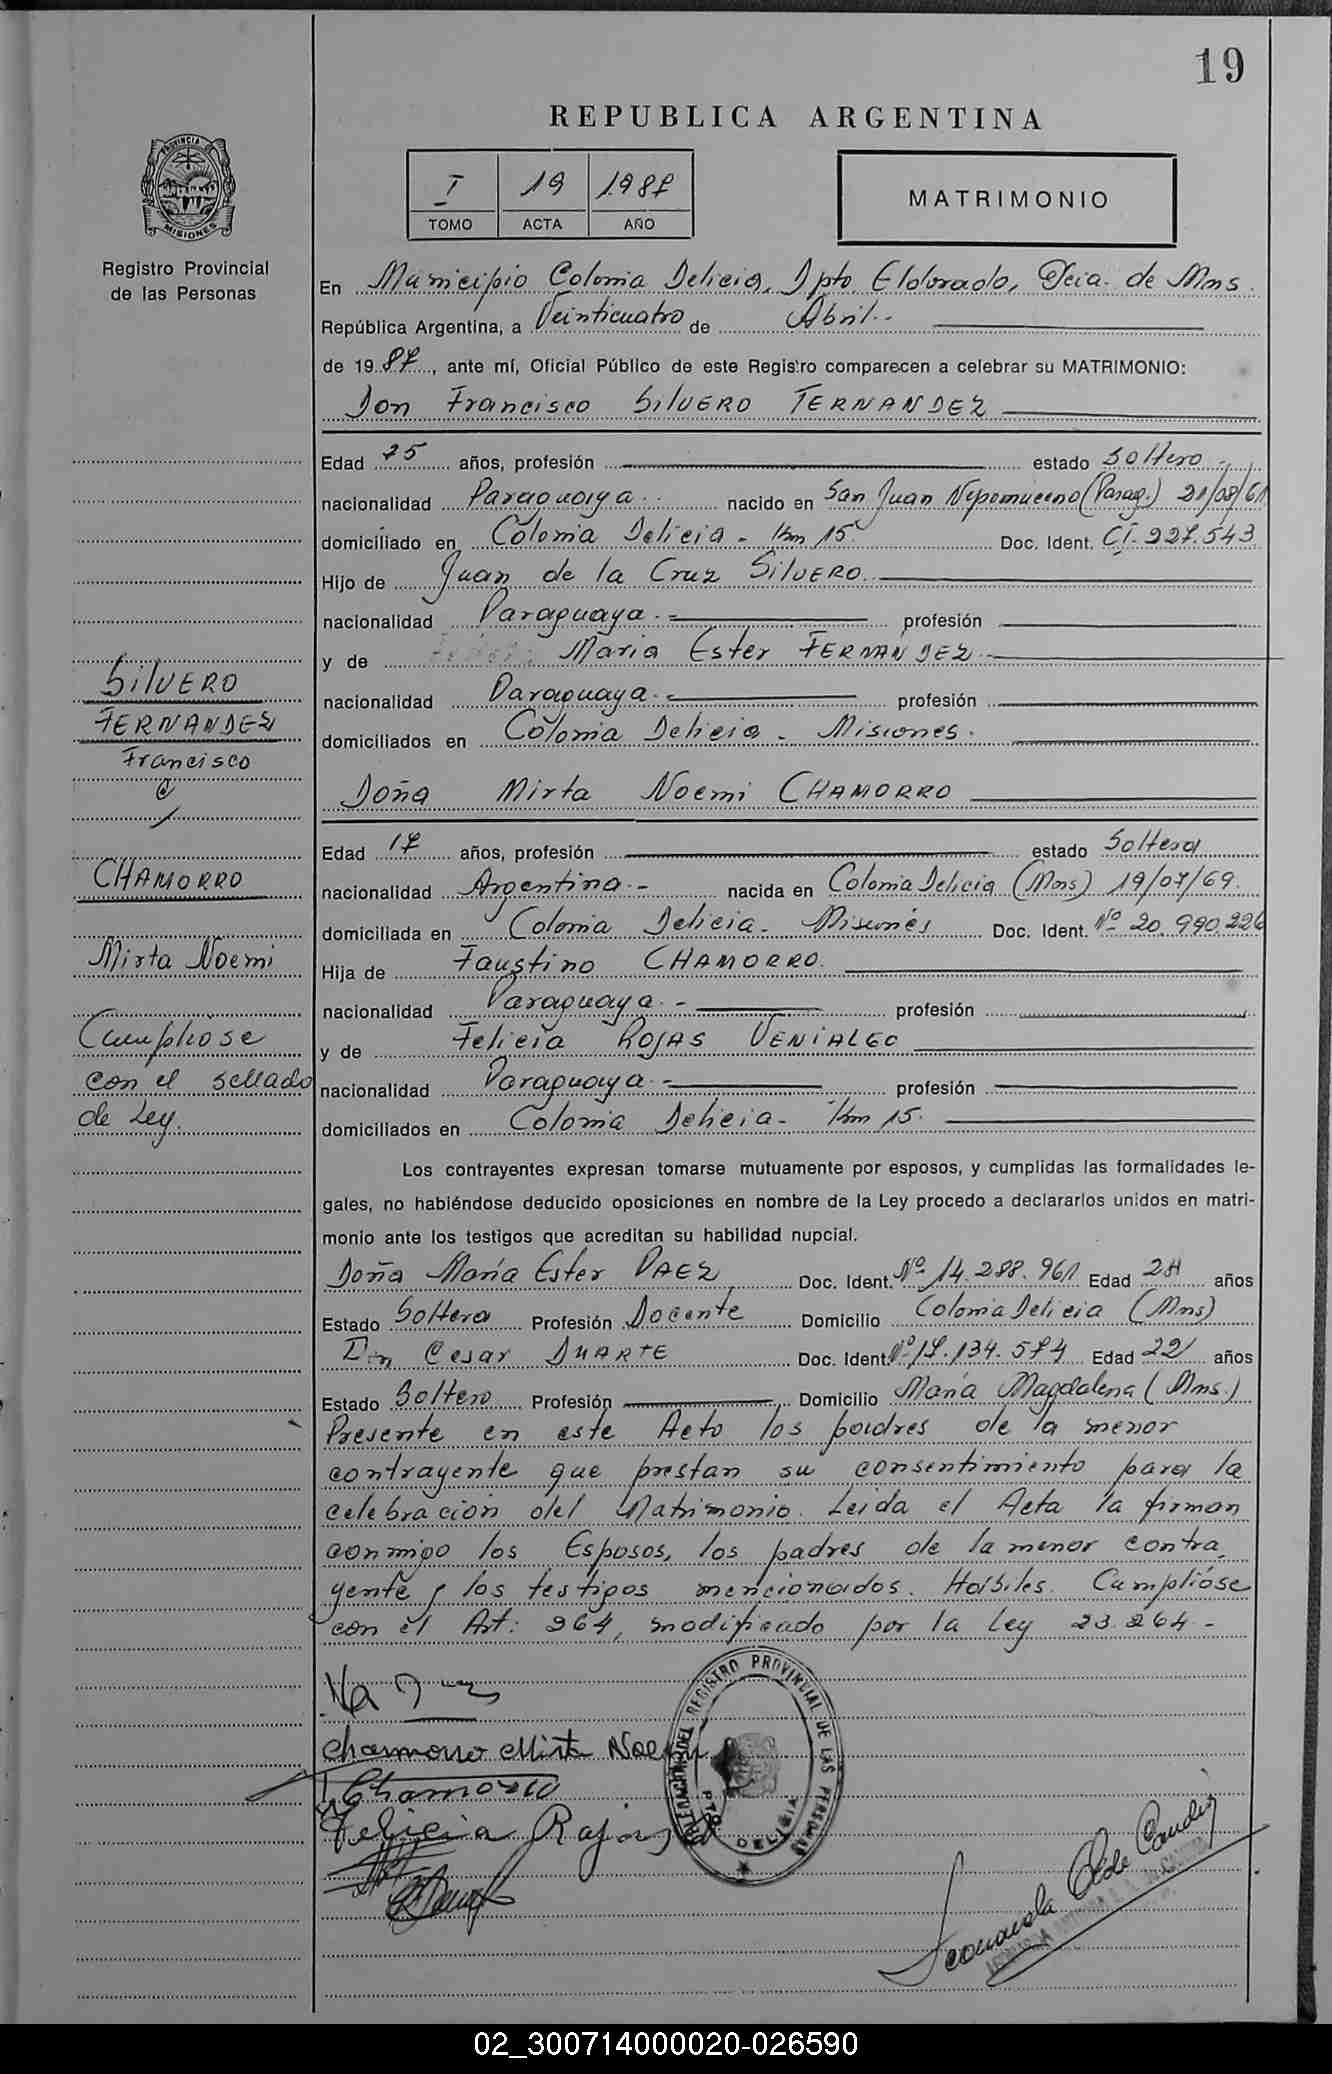 19
REPUBLICA ARGENTINA
I 19 1987
TOMO ACTA AÑO
MATRIMONIO
PROVINCIA DE
MISIONES
Registro Provincial
de las Personas
En Municipio Colonia Delicia, Dpto. Eldorado, Pcia. de Mnes.
República Argentina, a Veinticuatro de Abril.-
de 1987, ante mí, Oficial Público de este Registro comparecen a celebrar su MATRIMONIO:
Don Francisco SILVERO FERNANDEZ
Edad 25 años, profesión estado Soltero.-
nacionalidad Paraguaya.- nacido en San Juan Nepomuceno (Parag.) 21/08/61
domiciliado en Colonia Delicia - Km 15. Doc. Ident. CI. 227.543
Hijo de Juan de la Cruz SILVERO.
nacionalidad Paraguaya.- profesión
y de Maria Ester FERNANDEZ
nacionalidad Paraguaya.- profesión
domiciliados en Colonia Delicia - Misiones.
Doña Mirta Noemi CHAMORRO
Edad 17 años, profesión estado Soltera
nacionalidad Argentina.- nacida en Colonia Delicia (Mns) 19/07/69.
domiciliada en Colonia Delicia - Misiones Doc. Ident. Nº 20.990.226
Hija de Faustino CHAMORRO.
nacionalidad Paraguaya.- profesión
y de Felicia ROJAS VENIALGO
nacionalidad Paraguaya.- profesión
domiciliados en Colonia Delicia - Km 15.
SILVERO
FERNANDEZ
Francisco
c/
CHAMORRO
Mirta Noemi
Cumplióse
con el sellado
de Ley.
Los contrayentes expresan tomarse mutuamente por esposos, y cumplidas las formalidades le-
gales, no habiéndose deducido oposiciones en nombre de la Ley procedo a declararlos unidos en matri-
monio ante los testigos que acreditan su habilidad nupcial.
Doña María Ester PAEZ Doc. Ident. Nº 14.288.961 Edad 24 años
Estado Soltera Profesión Docente Domicilio Colonia Delicia (Mns)
Don Cesar DUARTE Doc. Ident. Nº 17.134.574 Edad 22 años
Estado Soltero Profesión Domicilio María Magdalena (Mns.)
Presente en este Acto los padres de la menor
contrayente que prestan su consentimiento para la
celebración del Matrimonio. Leida el Acta la firman
conmigo los Esposos, los padres de la menor contra
yente y los testigos mencionados. Hábiles. Cumplióse
con el Art: 264, modificado por la Ley 23.264.-
Chamorro Mirta Noemi
Chamorro
Felicia Rojas
DELEGACION DEL REGISTRO PROVINCIAL DE LAS PERSONAS
PTO. DELICIA
02_300714000020-026590